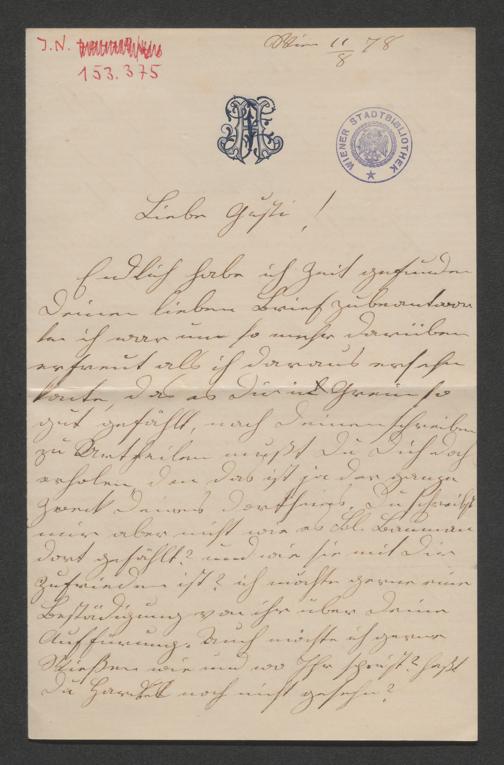 I.N.
153.375
Wien 11/8 78
WIENER STADTBIBLIOTHEK
Liebe Gusti!
Endlich habe ich Zeit gefunden
Deinen lieben Brief zubeantwor
ten ich war um so mehr darüber
erfreut als ich daraus ersehen
konte, das es Dir in Grein so
gut gefählt, nach Deinem schreiben
zu Urtheilen mußt Du Dich doch
erholen, den das ist ja der ganze
Zweck Deines dortseins, Du schreibst
mir aber nicht wie es Frl. Bauman
dort gefählt? und wie sie mit Dir
zufrieden ist? ich möchte gerne eine
Bestädigung von ihr über Deine
Aufführung. Auch möchte ich gerne
Wießen wie und wo Ihr speist? hast
Du noch nicht gesehn?